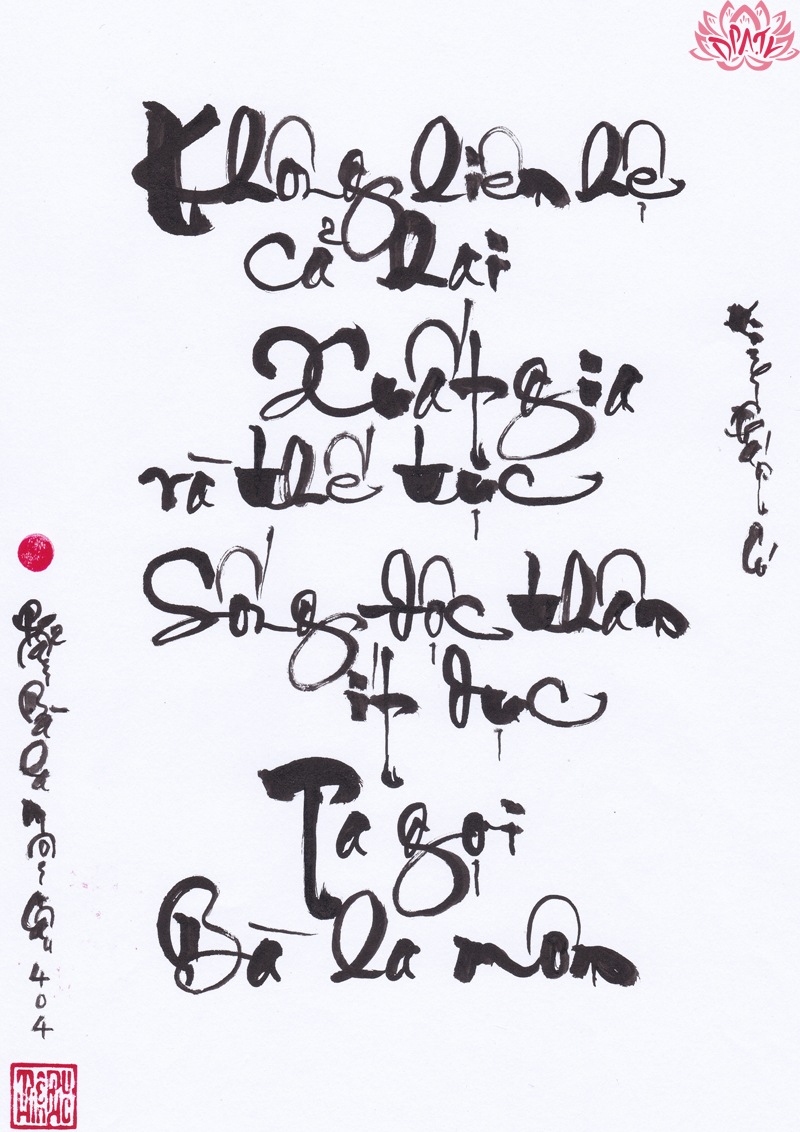 DPATK
Không liên hệ
cả hai
Xuất gia
và thế tục
Sống độc thân
ít dục
Ta gọi
Bà la môn
Kinh Pháp Cú
Phẩm Bà la môn câu 404